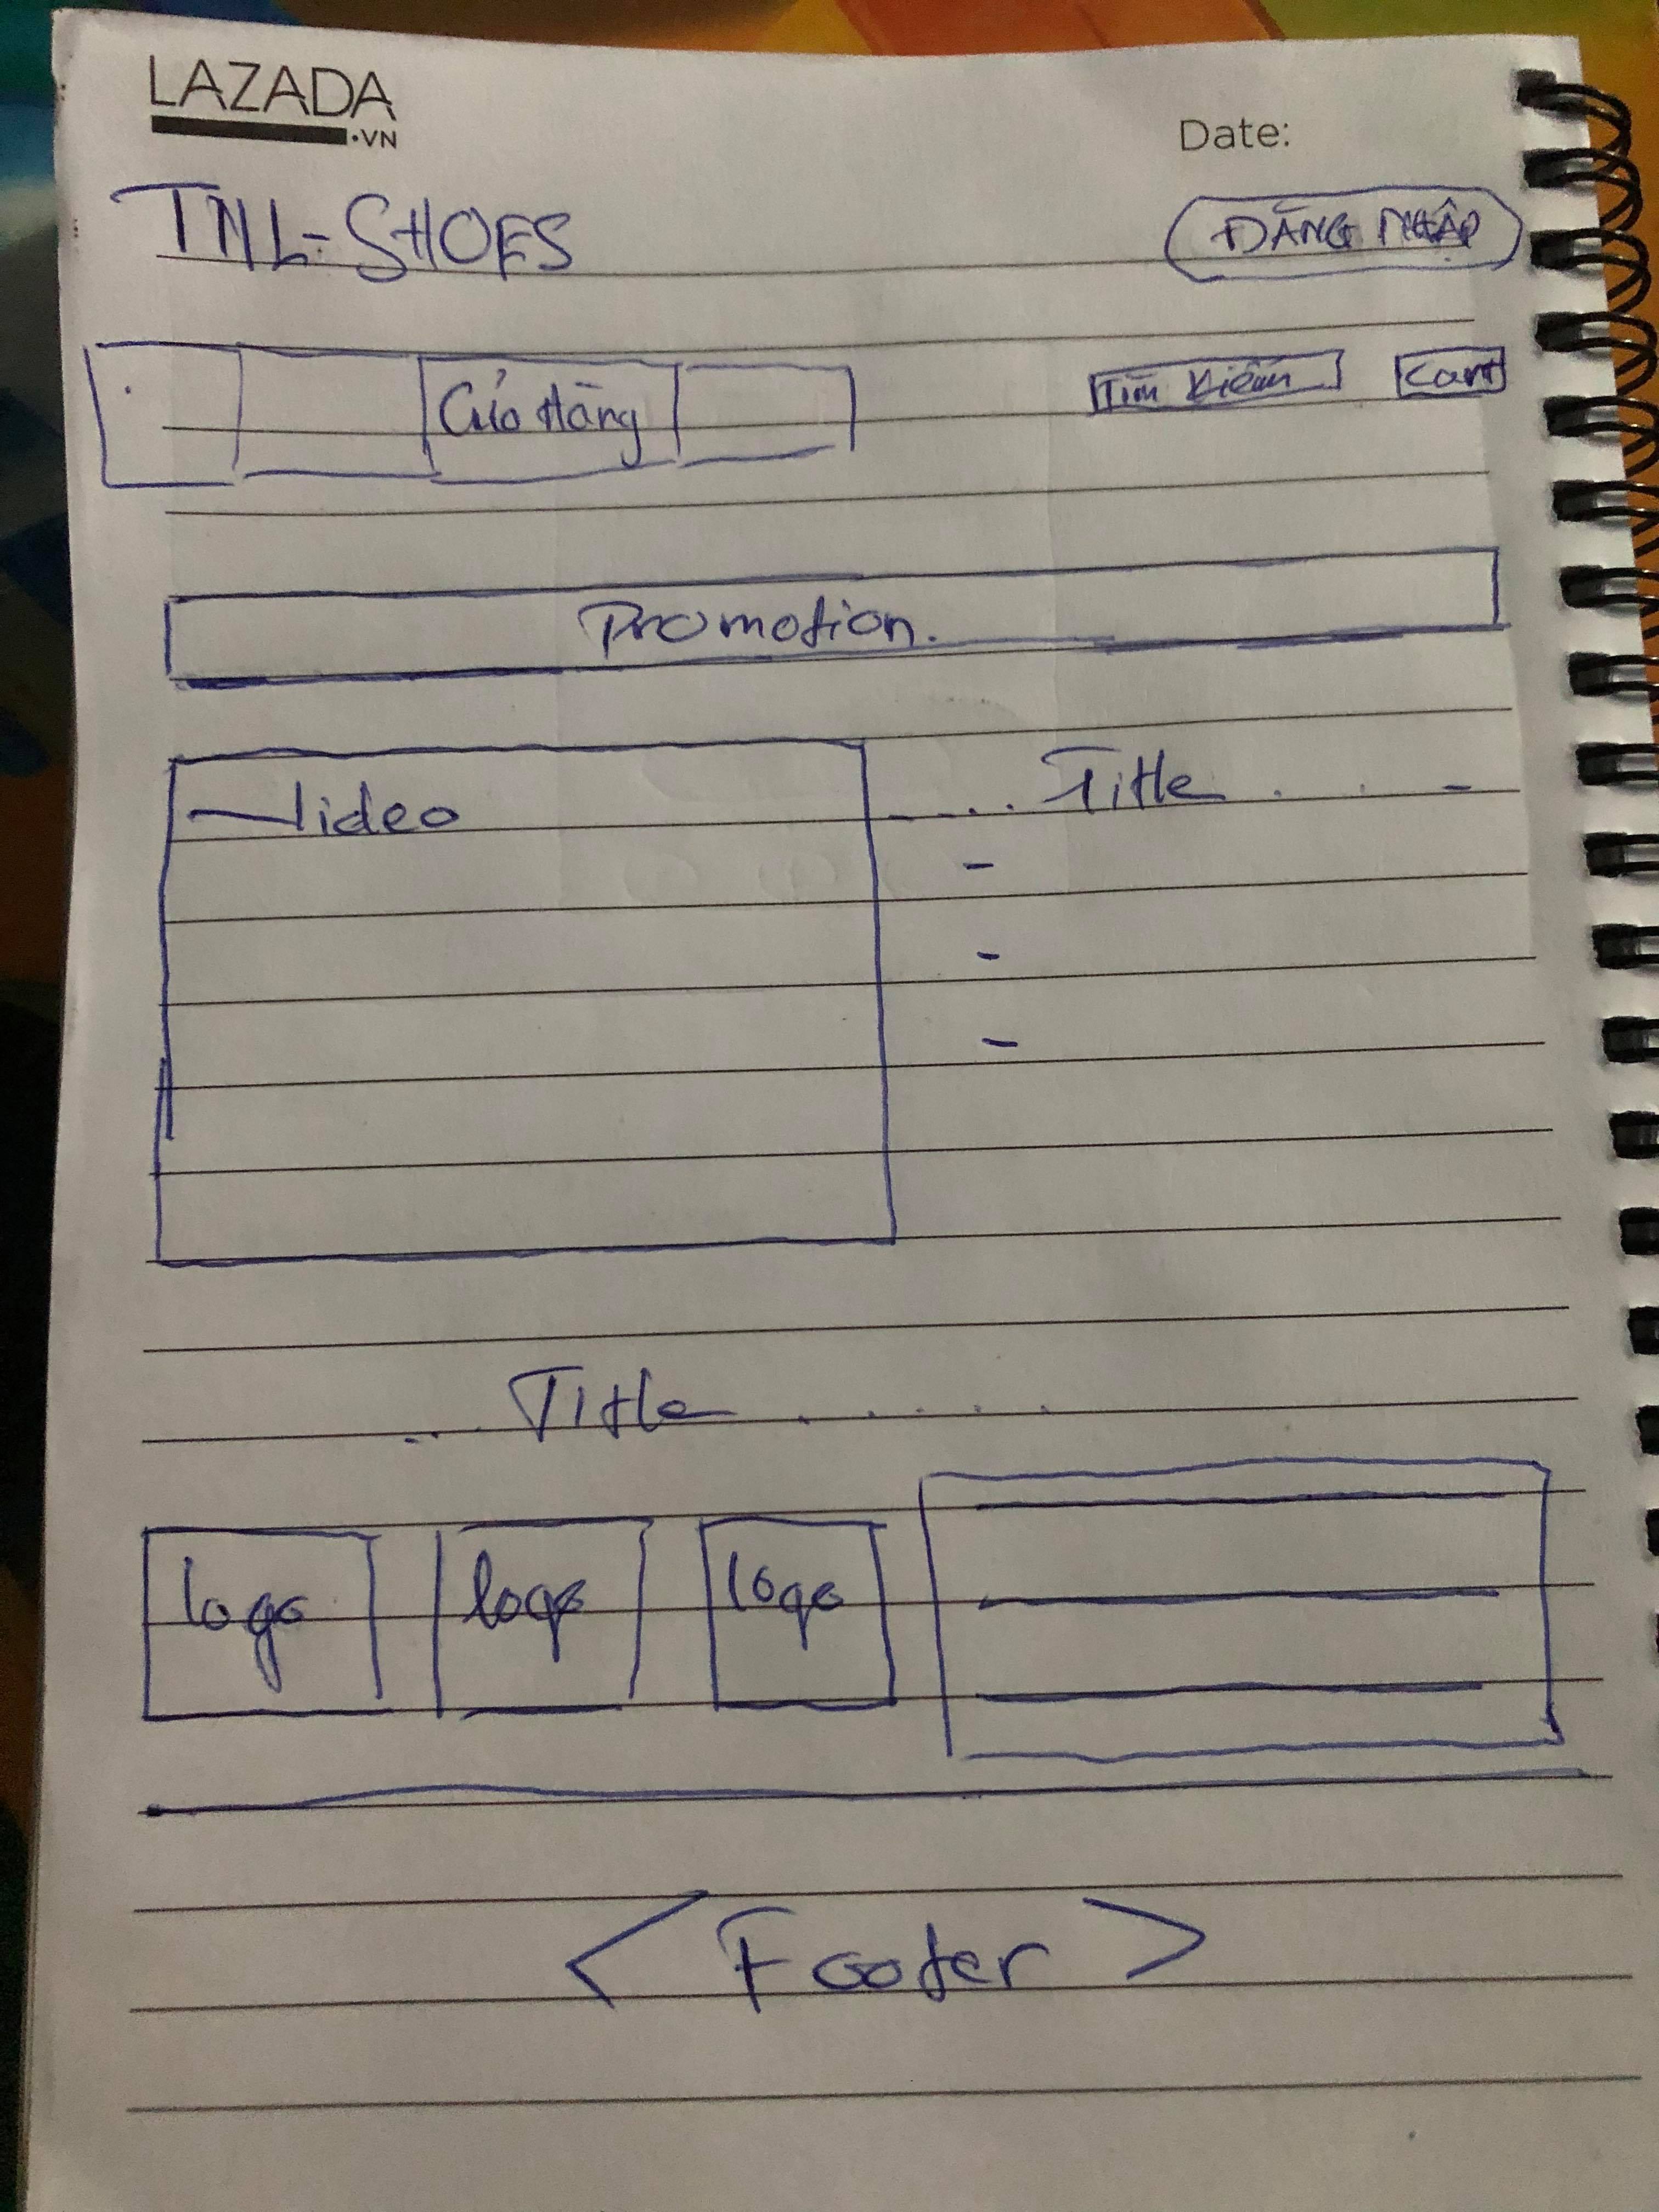 LAZADA
.VN
Date:
TNL-SHOES
ĐĂNG NHẬP
Cửa Hàng
Tìm Kiếm
Cart
Promotion.
Video
.... Title . . -
-
-
-
... Title . . . . .
logo
logo
logo
< Footer >